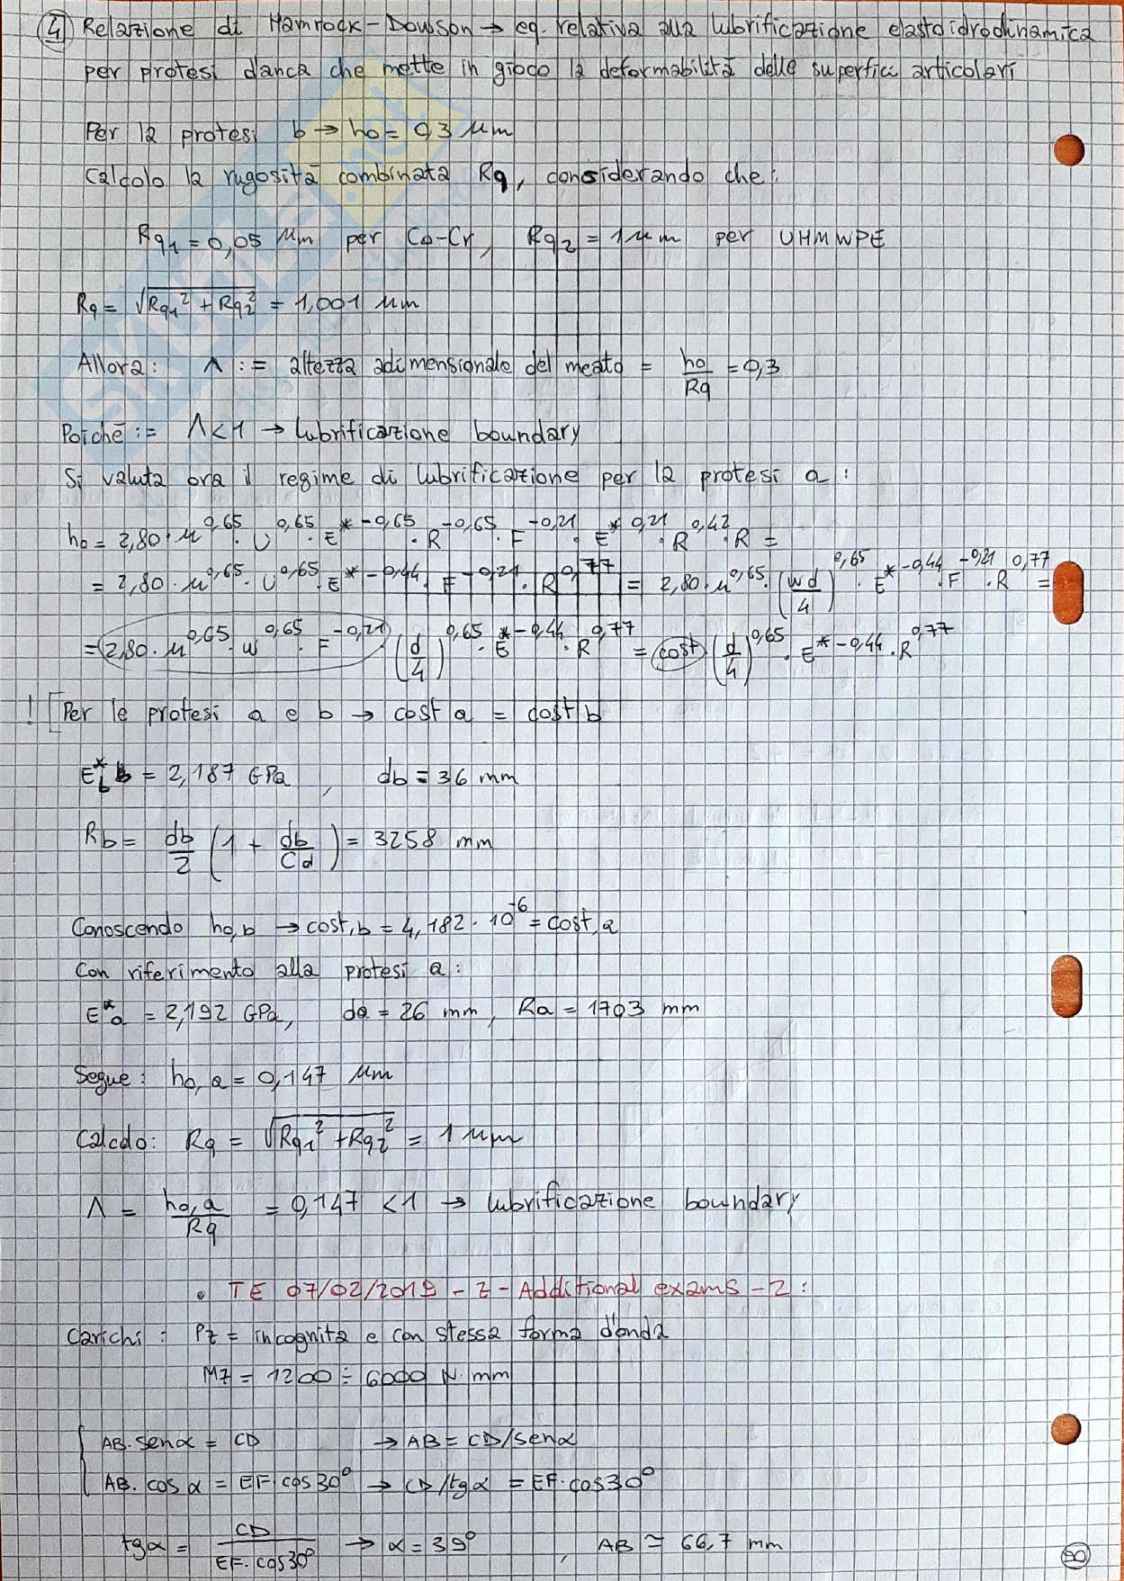 4) Relazione di Hamrock-Dowson → eq. relativa alla lubrificazione elastoidrodinamica
per protesi d'anca che mette in gioco la deformabilità delle superfici articolari
Per la protesi b → h0 = 0,3 μm
Calcolo la rugosità combinata Rq, considerando che:
Rq1 = 0,05 μm per Co-Cr, Rq2 = 1 μm per UHMWPE
Rq = √(Rq1² + Rq2²) = 1,001 μm
Allora: Λ := altezza adimensionale del meato = h0/Rq = 0,3
Poiché := Λ<1 → lubrificazione boundary
Si valuta ora il regime di lubrificazione per la protesi a:
h0 = 2,80 · μ^0,65 · U^0,65 · E*^-0,65 · R^-0,65 · F^-0,21 · E*^0,21 · R^0,42 · R =
= 2,80 · μ^0,65 · U^0,65 · E*^-0,44 · F^-0,21 · R^0,77 = 2,80 · μ^0,65 · (wd/4)^0,65 · E*^-0,44 · F^-0,21 · R^0,77 =
= 2,80 · μ^0,65 · w^0,65 · F^-0,21 · (d/4)^0,65 · E*^-0,44 · R^0,77 = cost (d/4)^0,65 · E*^-0,44 · R^0,77
! [Per le protesi a e b → cost,a = cost,b
E*b = 2,187 GPa, db = 36 mm
Rb = db/2 (1 + db/Cd) = 3258 mm
Conoscendo h0,b → cost,b = 4,182 · 10^-6 = cost,a
Con riferimento alla protesi a:
E*a = 2,192 GPa, da = 26 mm, Ra = 1703 mm
Segue: h0,a = 0,147 μm
Calcolo: Rq = √(Rq1² + Rq2²) = 1 μm
Λ = h0,a/Rq = 0,147 <1 → lubrificazione boundary
• TE 07/02/2019 - Z - Additional exams - 2:
Carichi: Pz = incognita e con stessa forma d'onda
Mz = 1200 ÷ 6000 N·mm
{ AB·senα = CD → AB = CD/senα
AB·cosα = EF·cos30° → CD/tgα = EF·cos30°
tgα = CD/(EF·cos30°) → α = 39°, AB ≃ 66,7 mm
50